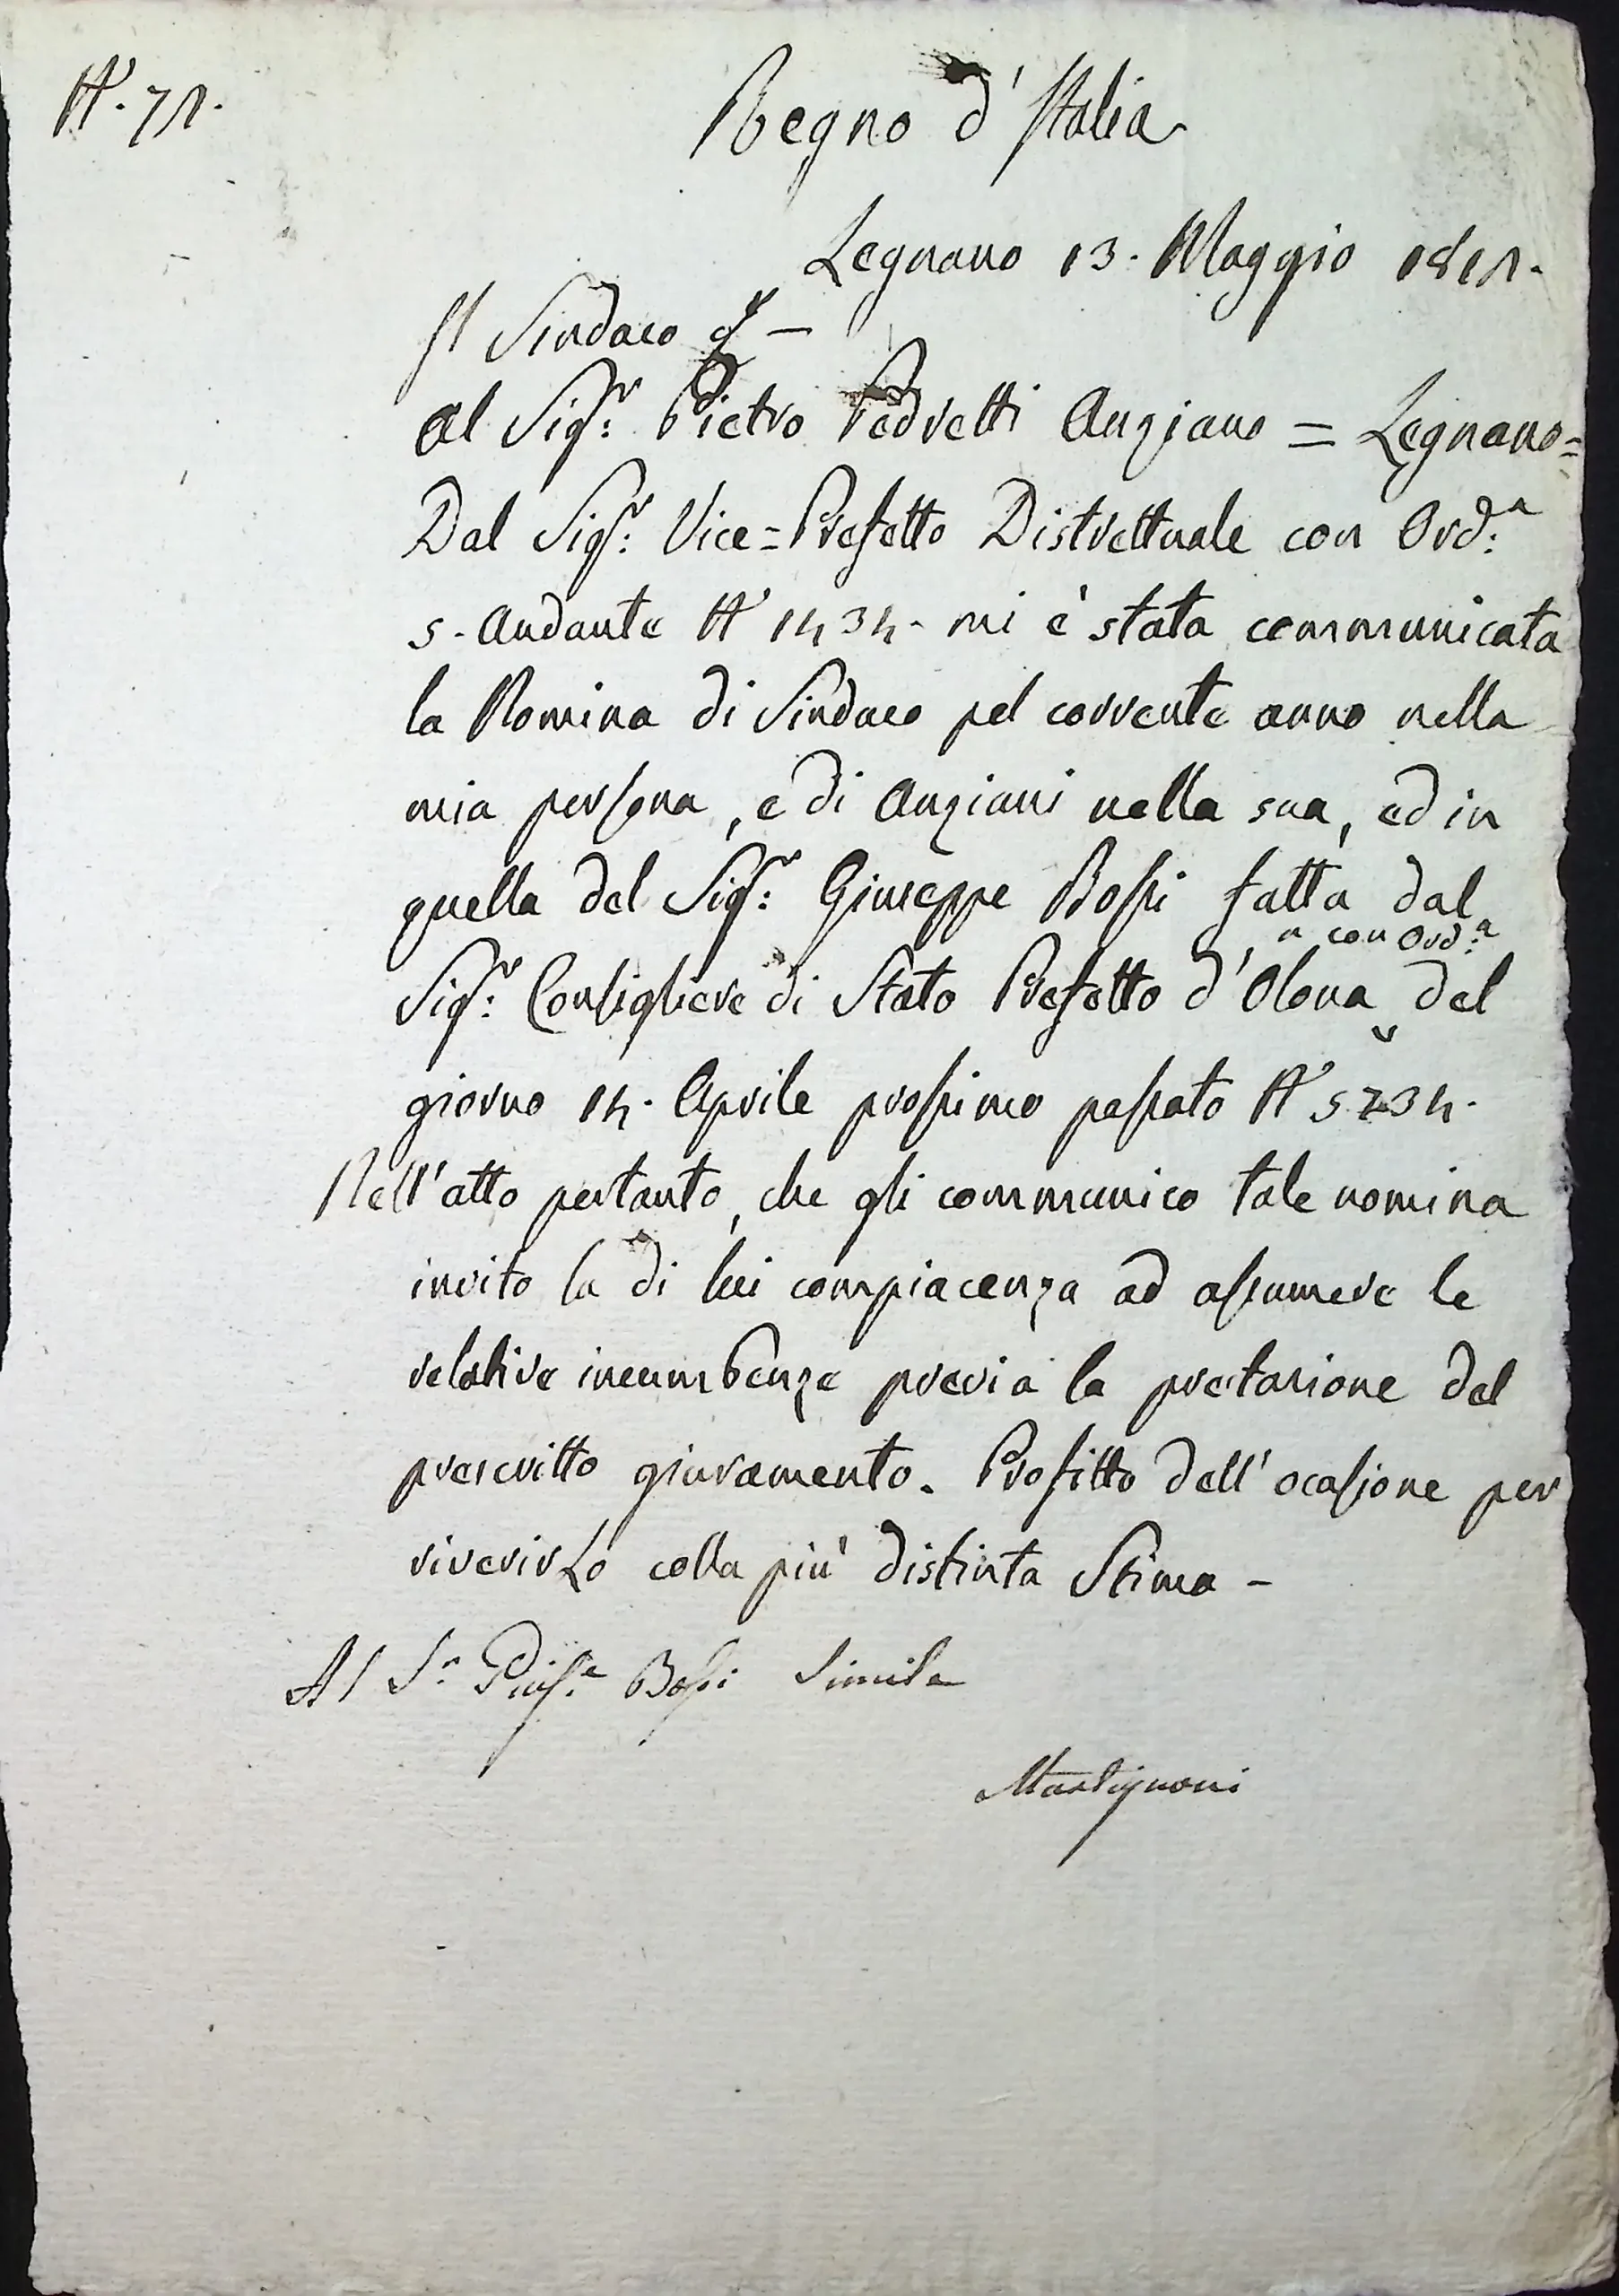 N.° 71.
Regno d'Italia
Legnano 13. Maggio 1811.
Il Sindaco
Al Sigr: Pietro Pedretti Anziano = Legnano =
Dal Sigr: Vice=Prefetto Distrettuale con Ord:a
5. Andante N° 1434. mi è stata communicata
la Nomina di Sindaco pel corrente anno nella
mia persona, e di Anziani nella sua, ed in
quella del Sigr: Giuseppe Bossi fatta dal
Sigr: Consigliere di Stato Prefetto d'Olona con Ord:a del
giorno 14. Aprile prossimo passato N° 5234.
Nell'atto pertanto, che gli communico tale nomina
invito la di lui compiacenza ad assumere le
relative incumbenze previa la prestasione del
prescritto giuramento. Profitto dell'ocasione per
riverirLo colla più distinta Stima -
Al Sr Giuse Bossi Simile
Martignoni